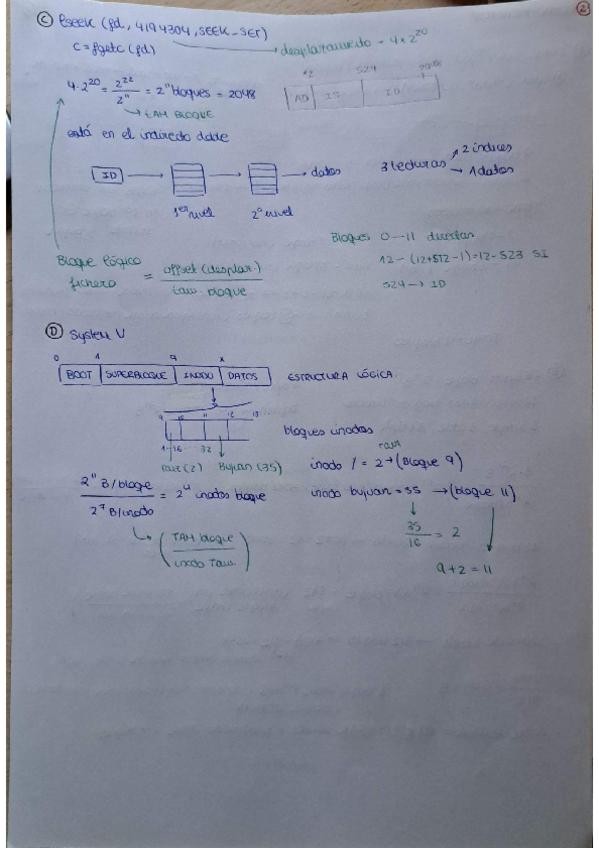 2
C lseek (fd, 4194304, SEEK_SET) → desplazamiento = 4 * 2^20
c = fgetc (fd)
4·2^20 = 2^22 / 2^11 = 2^11 bloques = 2048
→ TAM BLOQUE
12 524
AD IS ID
está en el indirecto doble
ID → → → datos
1er nivel 2º nivel
3 lecturas → 2 índices
→ 1 datos
Bloque lógico fichero = offset (desplaz.) / tam. bloque
Bloques 0-11 directos
12 - (12+512-1) = 12-523 SI
524 → ID
D System V
0 1 9 x
BOOT SUPERBLOQUE INODO DATOS ESTRUCTURA LÓGICA
9 10 11 12 13
bloques inodos
1-16 32
raiz (2) Bujuan (35)
raiz
inodo / = 2 → (Bloque 9)
2^11 B/bloque / 2^7 B/inodo = 2^4 inodos bloque
inodo bujuan = 35 → (bloque 11)
(TAM bloque / inodo Tam.)
35 / 16 = 2
9 + 2 = 11